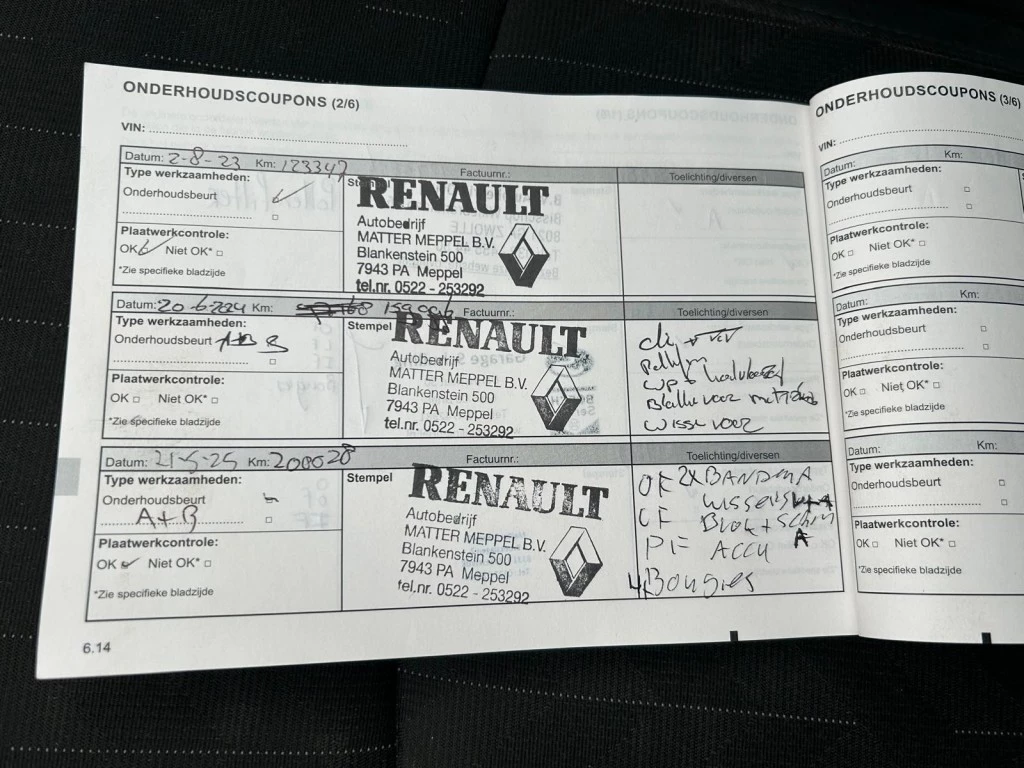 ONDERHOUDSCOUPONS (2/6)
VIN:
Datum: 2-8-23 Km: 123347 Factuurnr.: Toelichting/diversen
Type werkzaamheden:
Onderhoudsbeurt
Plaatwerkcontrole:
OK Niet OK*
*Zie specifieke bladzijde
Stempel
RENAULT
Autobedrijf
MATTER MEPPEL B.V.
Blankenstein 500
7943 PA Meppel
tel.nr. 0522 - 253292
Datum: 20-6-2024 Km: Factuurnr.: Toelichting/diversen
Type werkzaamheden:
Onderhoudsbeurt
Plaatwerkcontrole:
OK Niet OK*
*Zie specifieke bladzijde
Stempel
RENAULT
Autobedrijf
MATTER MEPPEL B.V.
Blankenstein 500
7943 PA Meppel
tel.nr. 0522 - 253292
wisse voor
Datum: 21-5-25 Km: 200028 Factuurnr.: Toelichting/diversen
Type werkzaamheden:
Onderhoudsbeurt
A+B
Plaatwerkcontrole:
OK Niet OK*
*Zie specifieke bladzijde
Stempel
RENAULT
Autobedrijf
MATTER MEPPEL B.V.
Blankenstein 500
7943 PA Meppel
tel.nr. 0522 - 253292
OF 2x BANDEN A
wissers
CF Blok +
PF ACCU
4x Bougies
6.14
ONDERHOUDSCOUPONS (3/6)
VIN:
Datum: Km:
Type werkzaamheden:
Onderhoudsbeurt
Plaatwerkcontrole:
OK Niet OK*
*Zie specifieke bladzijde
Datum: Km:
Type werkzaamheden:
Onderhoudsbeurt
Plaatwerkcontrole:
OK Niet OK*
*Zie specifieke bladzijde
Datum: Km:
Type werkzaamheden:
Onderhoudsbeurt
Plaatwerkcontrole:
OK Niet OK*
*Zie specifieke bladzijde